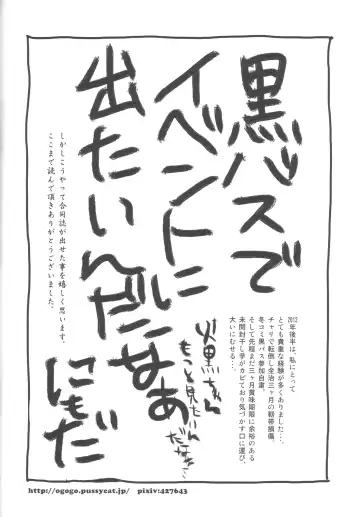 黒バスで
イベントに
出たいんだなあ
にもだ
火黒ちゃん
もっと見たいん
だなあ…
2012年後半は、私にとって
とても貴重な経験が多くありました…。
チャリで転倒し全治三ヶ月の靭帯損傷。
冬コミ黒バス参加自粛。
そして先程まだ三ヶ月賞味期限に余裕のある
未開封干し芋がカビており気づかず口に運び、
大いにむせる…。
しかしこうやって合同誌が出せた事を嬉しく思います。
ここまで読んで頂きありがとうございました。
http://ogogo.pussycat.jp/ pixiv:427643